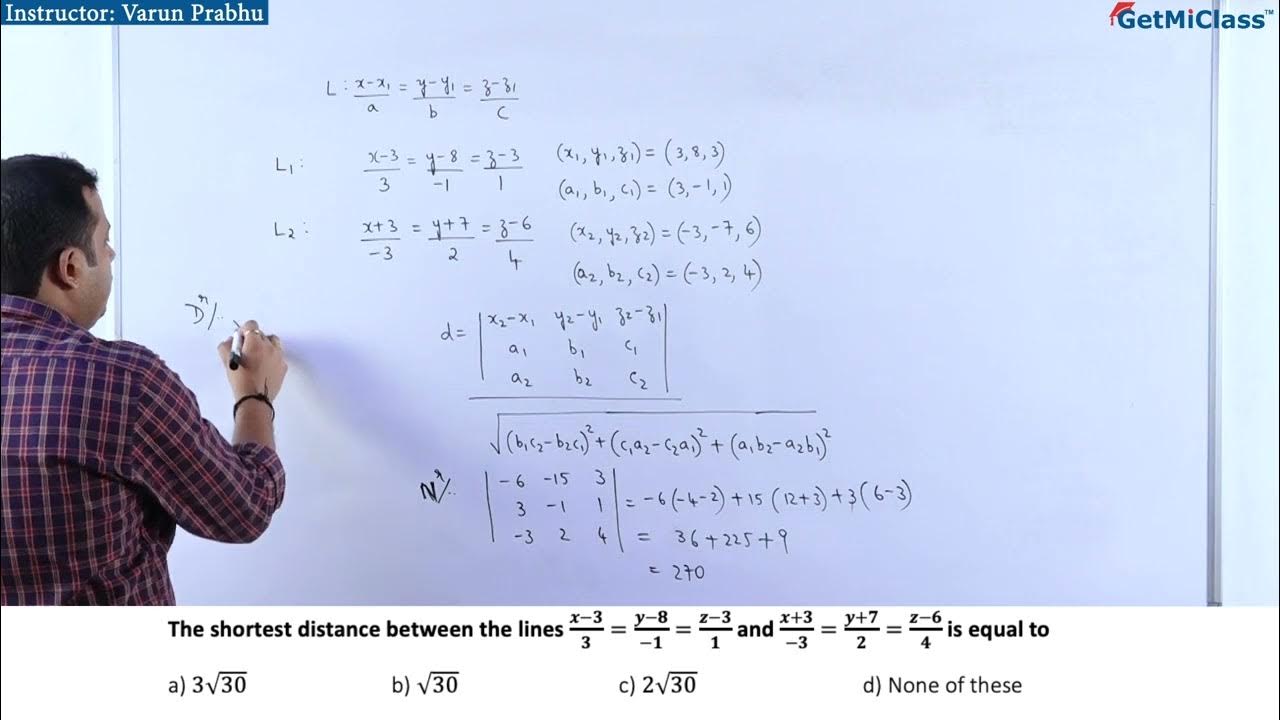 Instructor: Varun Prabhu
GetMiClass™
L : x-x₁/a = y-y₁/b = z-z₁/c
L₁ : x-3/3 = y-8/-1 = z-3/1 (x₁, y₁, z₁) = (3, 8, 3)
(a₁, b₁, c₁) = (3, -1, 1)
L₂ : x+3/-3 = y+7/2 = z-6/4 (x₂, y₂, z₂) = (-3, -7, 6)
(a₂, b₂, c₂) = (-3, 2, 4)
Dʳ/.
d = | x₂-x₁ y₂-y₁ z₂-z₁ |
a₁ b₁ c₁
a₂ b₂ c₂
√(b₁c₂-b₂c₁)² + (c₁a₂-c₂a₁)² + (a₁b₂-a₂b₁)²
Nʳ/. | -6 -15 3 |
3 -1 1 = -6(-4-2) + 15(12+3) + 3(6-3)
-3 2 4 = 36+225+9
= 270
The shortest distance between the lines x−3/3 = y−8/−1 = z−3/1 and x+3/−3 = y+7/2 = z−6/4 is equal to
a) 3√30 b) √30 c) 2√30 d) None of these